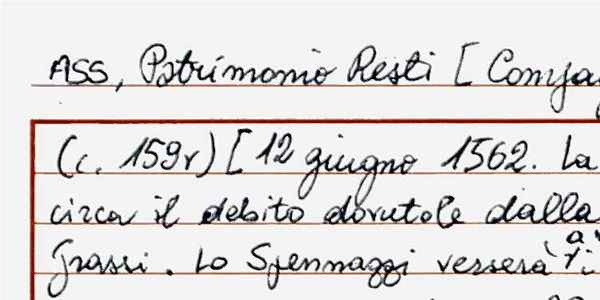 ASS, Patrimonio Resti [ Compa
(c. 159r) [ 12 giugno 1562. La
circa il debito dovutole dalla
Grassi. Lo Spennazzi verserà